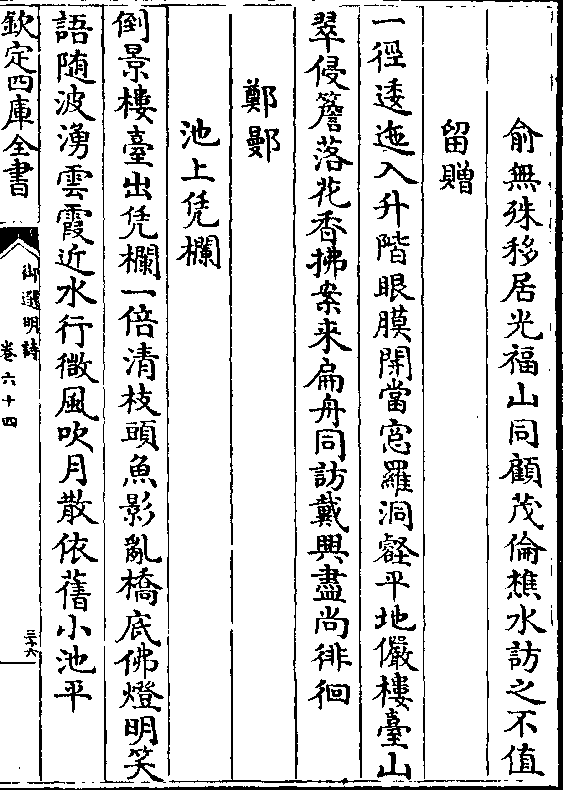 俞無殊移居光福山同顧茂倫樵水訪之不值
留贈
一徑逶迤入升階眼膜開當窓羅洞壑平地儼樓臺山
翠侵簷落花香拂案来扁舟同訪戴興盡尚徘徊
鄭鄤
池上凭欄
倒景樓臺出凭欄一倍清枝頭魚影亂橋底佛燈明笑
語随波湧雲霞近水行微風吹月散依舊小池平
欽定四庫全書
御選明詩
卷六十四
三十六